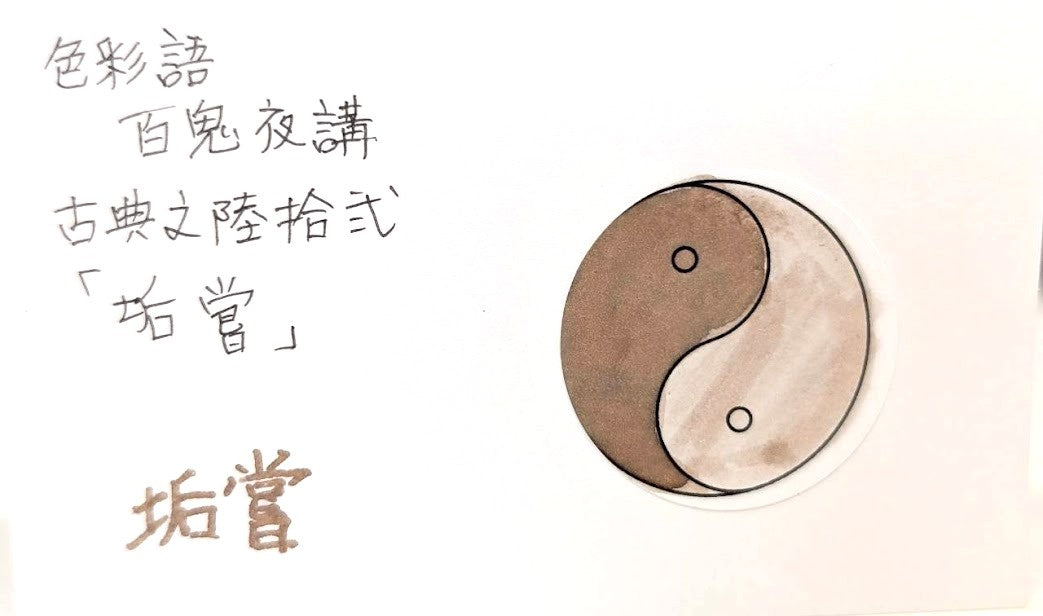 色彩語
百鬼夜講
古典之陸拾弐
「垢嘗」
垢嘗